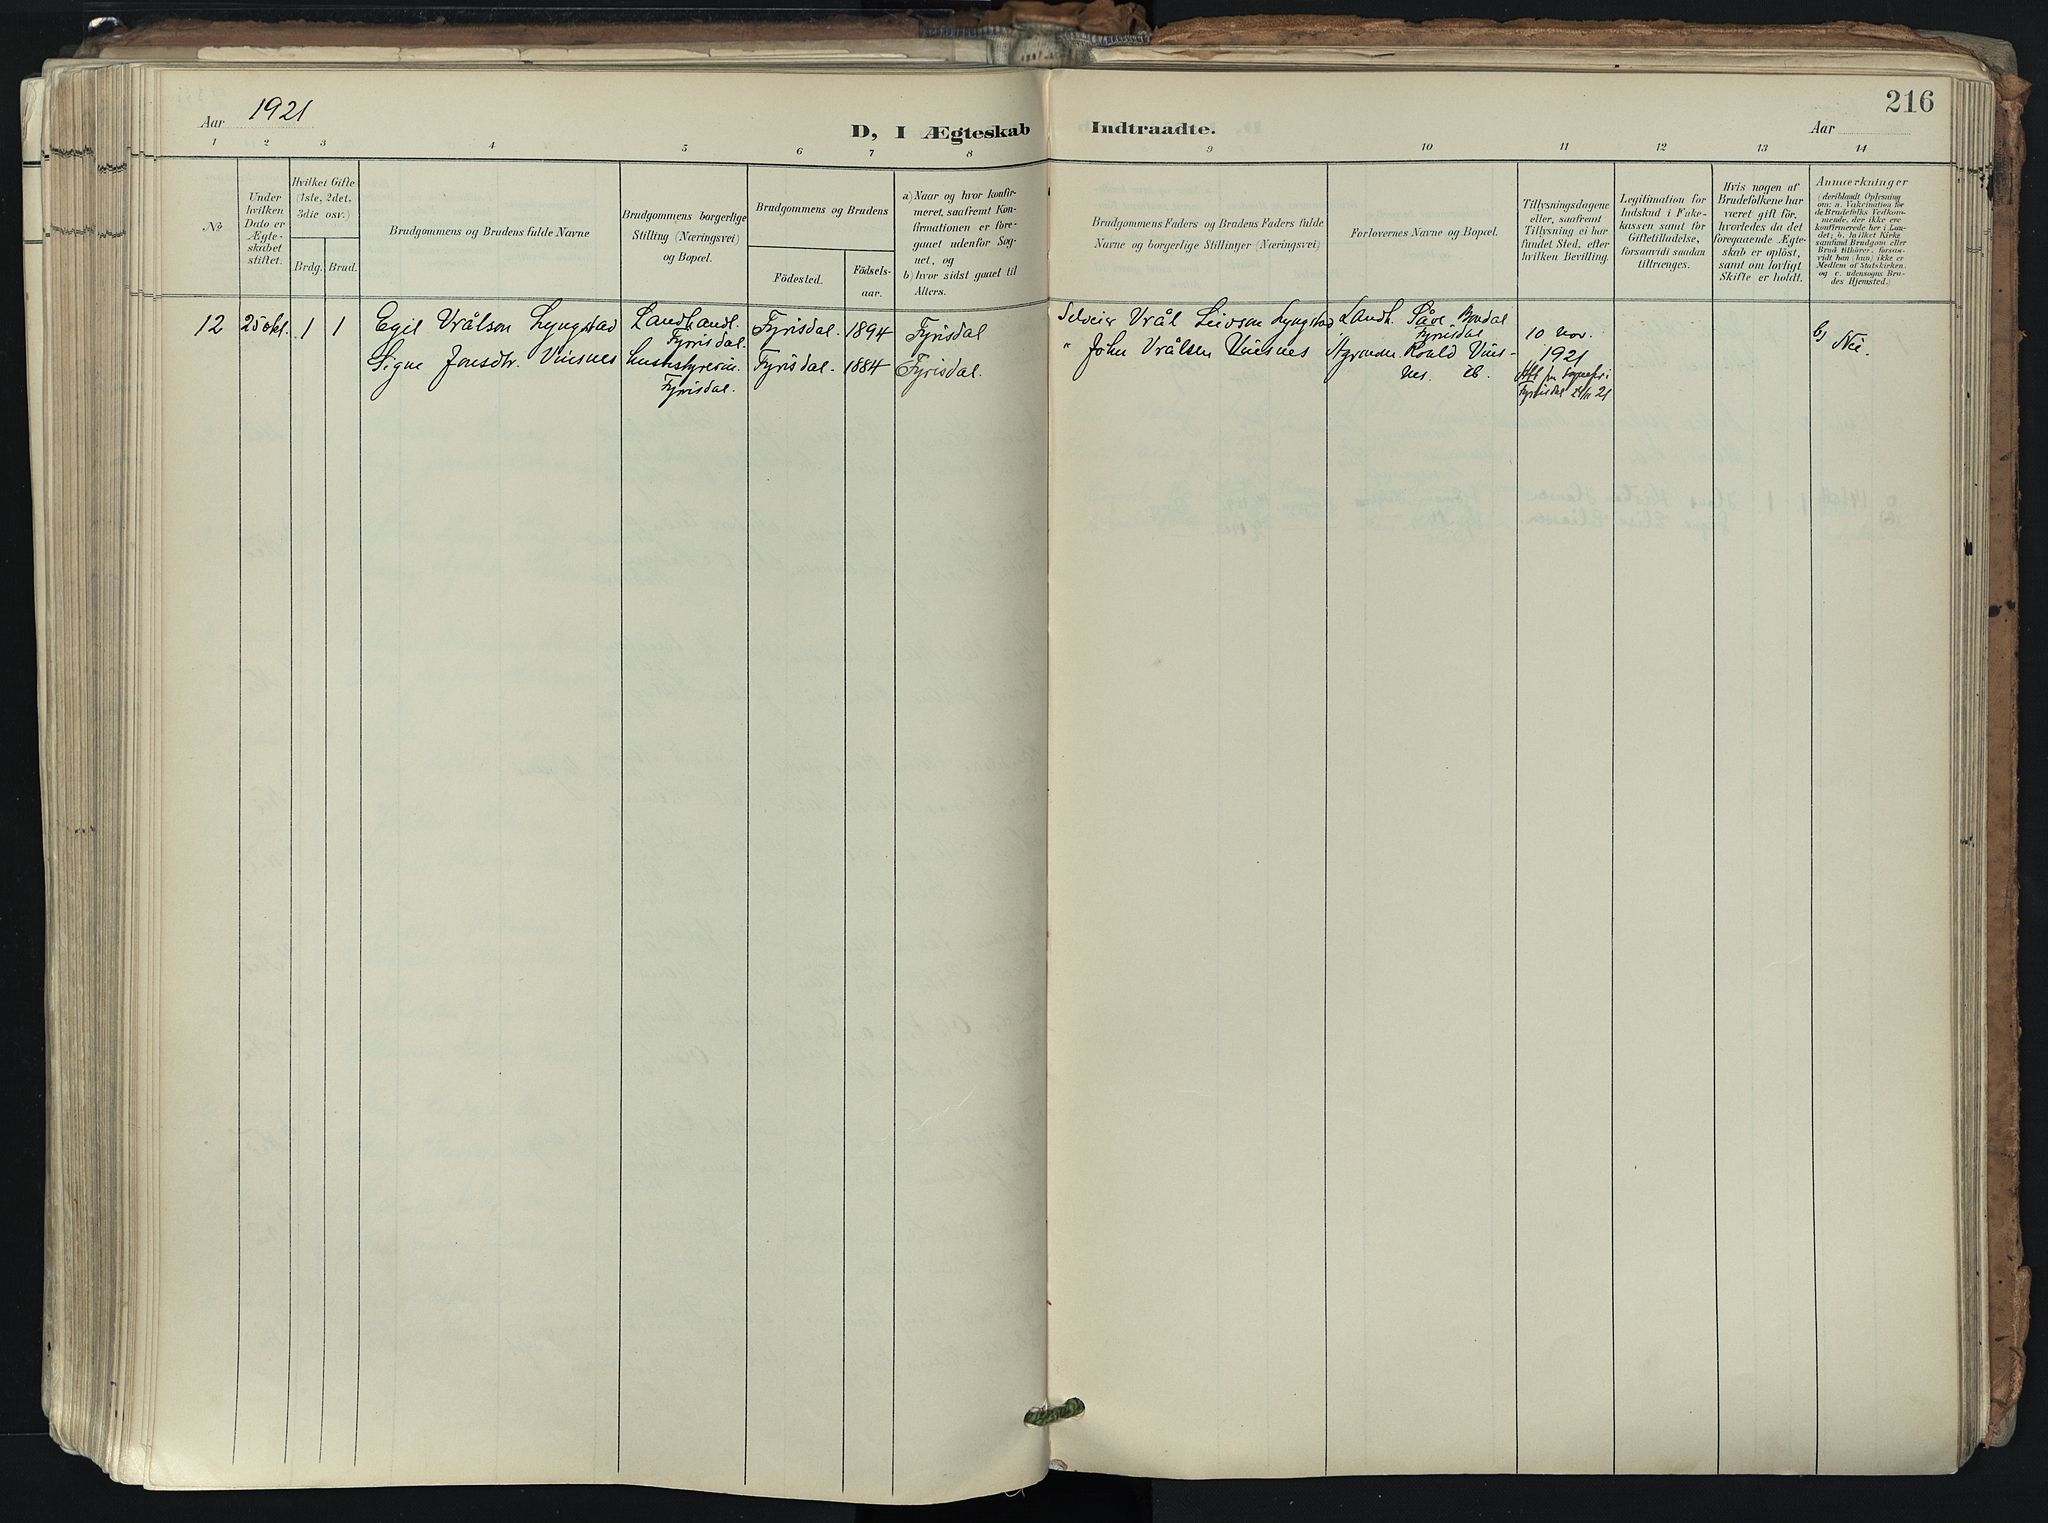 Aar 1921
D, I Ægteskab
Indtraadte.
Aar
216
1 2 3 4 5 6 7 8 9 10 11 12 13 14
No
Under hvilken Dato er Ægteskabet stiftet.
Hvilket Gifte (1ste, 2det, 3die osv.)
Brdg. Brud.
Brudgommens og Brudens fulde Navne
Brudgommens borgerlige Stilling (Næringsvei) og Bopæl.
Brudgommens og Brudens
Fødested.
Fødselsaar.
a) Naar og hvor konfirmeret, saafremt Konfirmationen er foregaaet udenfor Sognet, og
b) hvor sidst gaaet til Alters.
Brudgommens Faders og Brudens Faders fulde Navne og borgerlige Stillinger (Næringsvei)
Forlovernes Navne og Bopæl.
Tillysningsdagene eller, saafremt Tillysning ei har fundet Sted, efter hvilken Bevilling.
Legitimation for Indskud i Enkekassen samt for Giftetilladelse, forsaavidt saadan tiltrænges.
Hvis nogen af Brudefolkene har været gift før, hvorledes da det foregaaende Ægteskab er opløst, samt om lovligt Skifte er holdt.
Anmærkninger
(deriblandt Oplysning om: a. Vaksination for de Brudefolks Vedkommende, der ikke ere konfirmerede her i Landet; b. hvilket Kirkesamfund Brudgom eller Brud tilhører, forsaavidt han (hun) ikke er Medlem af Statskirken, og c. udensogns Brudes Hjemsted.)
12 25 okt. 1 1 Egil Vrålson Lyngstad Landhandl. Fyrisdal. Fyrisdal. 1894 Fyrisdal Selveier Vrål Leivson Lyngstad Landh. Såve Fyrisdal 10 nov. 1921 Nei.
Signe Jonsdtr. Vinsnes Fyrisdal. Fyrisdal. 1884 Fyrisdal. " John Vrålsen Vinsnes Roald Vinsnes. Fyrisdal 21